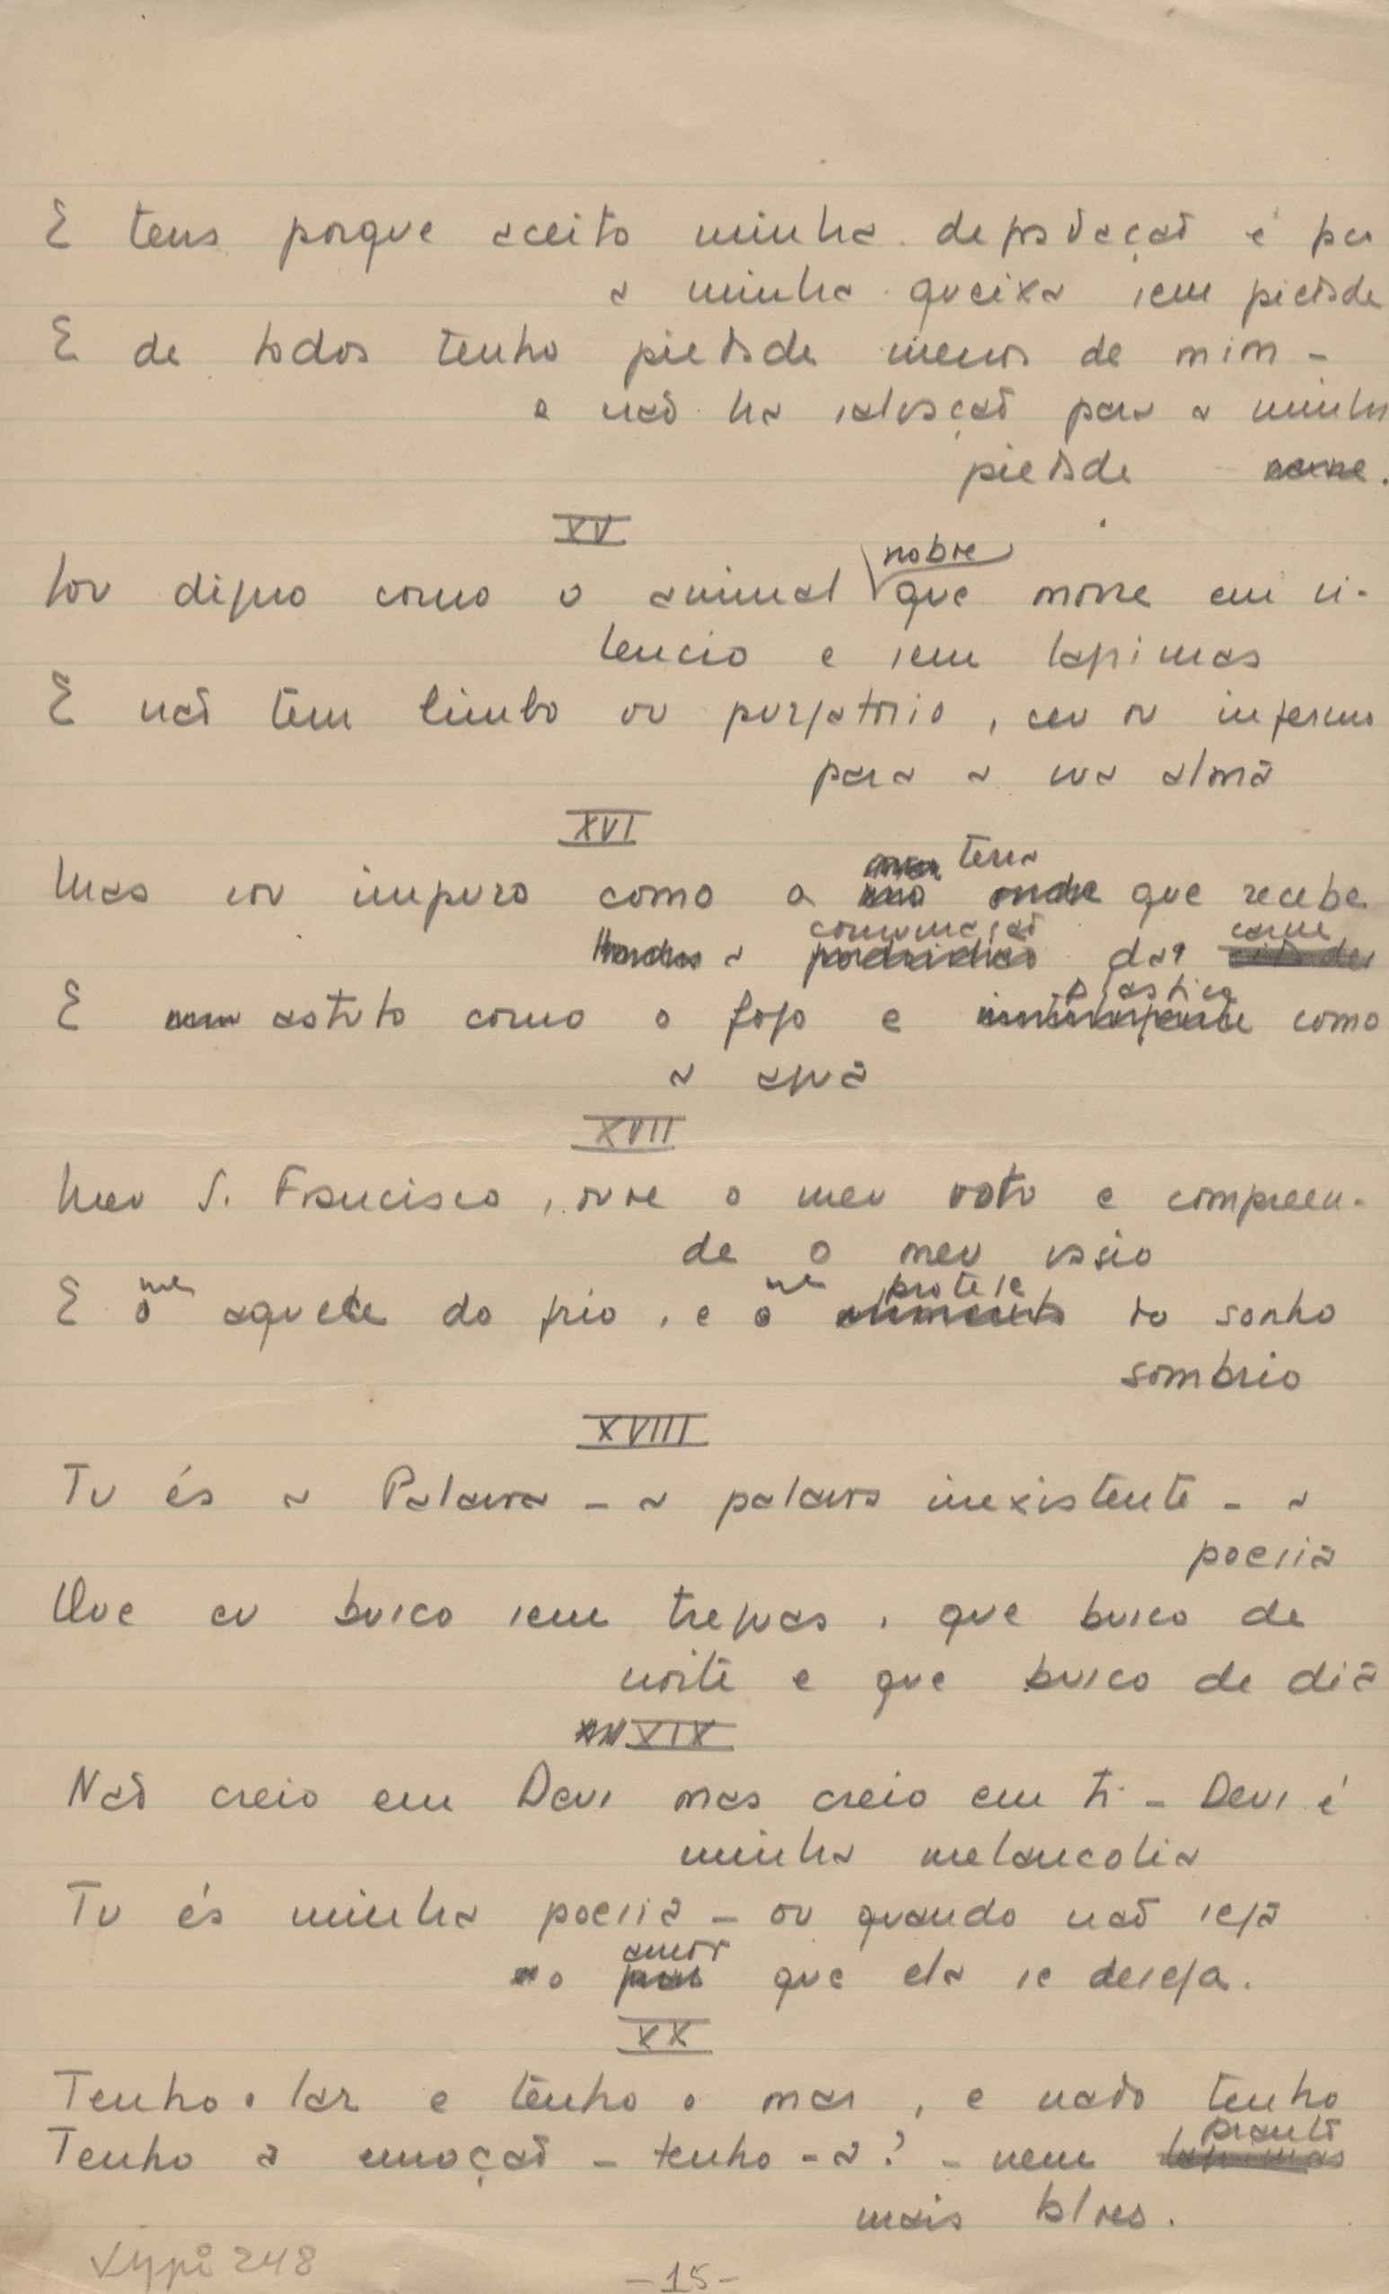 E tens porque aceito minha depravação e por
a minha queixa sem piedade
E de todos tenho piedade menos de mim -
e não ha salvação para a minha
piedade
XV
Sou digno como o animal nobre que morre em si-
lencio e sem lagrimas
E não tem limbo ou purgatorio, ceu ou inferno
para a sua alma
XVI
Mas sou impuro como a terra que recebe
a consumação da carne
E astuto como o fogo e plastico como
a agua
XVII
Meu S. Francisco, ouve o meu voto e compreen-
de o meu vasio
E me aquece do frio, e me protege do sonho
sombrio
XVIII
Tu és a Palavra - a palavra inexistente - a
poesia
Que eu busco sem treguas, que busco de
noite e que busco de dia
XIX
Não creio em Deus mas creio em ti - Deus é
minha melancolia
Tu és minha poesia - ou quando não seja
o amor que ela se deseja.
XX
Tenho o lar e tenho o mar, e nada tenho
Tenho a emoção - tenho-a? - nem pranto
mais talvez.
248
-15-